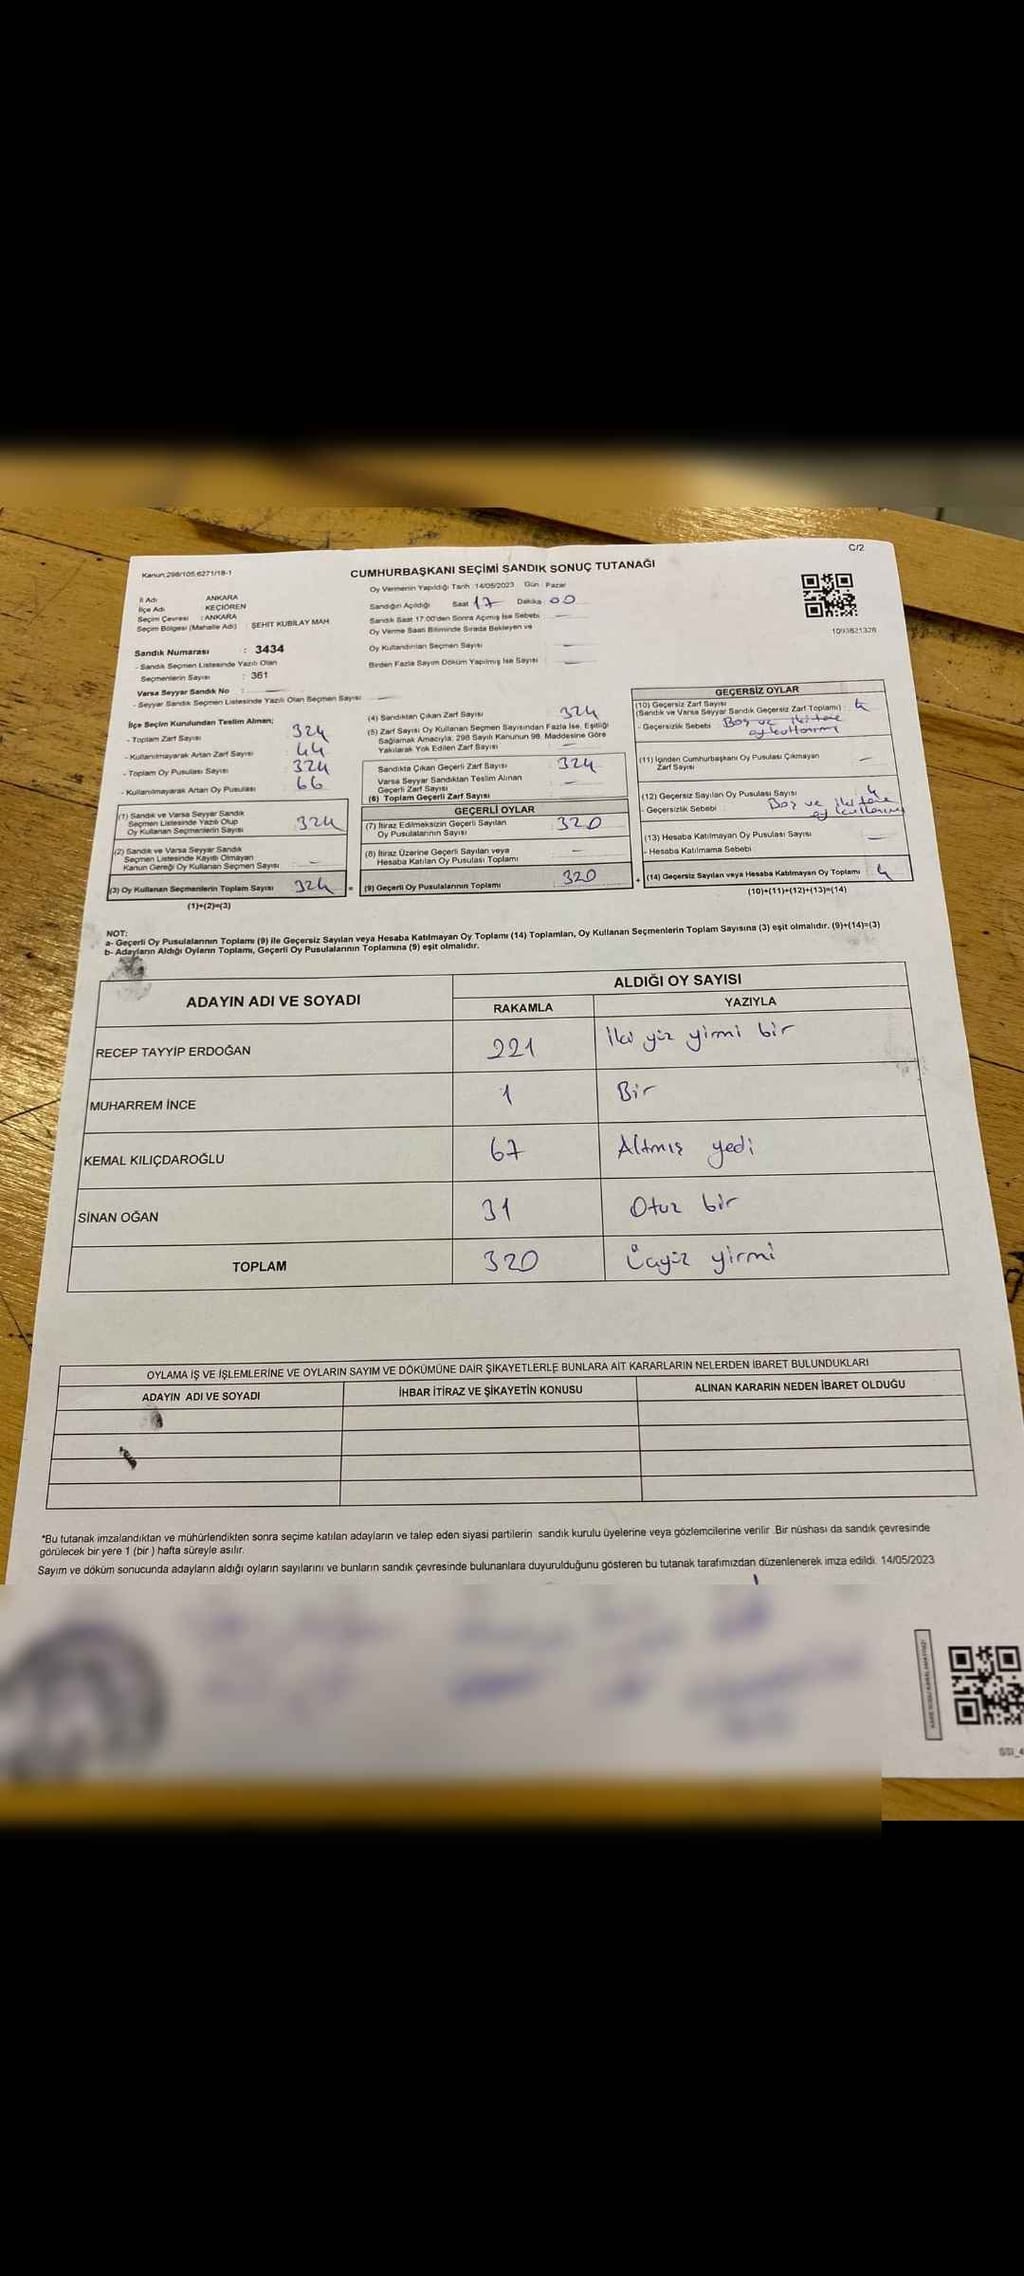 C/2
Kanun:298/105,6271/18-1
CUMHURBAŞKANI SEÇİMİ SANDIK SONUÇ TUTANAĞI
İl Adı ANKARA
İlçe Adı KEÇİÖREN
Seçim Çevresi : ANKARA
Seçim Bölgesi (Mahalle Adı) ŞEHİT KUBİLAY MAH
Oy Vermenin Yapıldığı Tarih :14/05/2023 Gün : Pazar
Sandığın Açıldığı Saat 17 Dakika 00
Sandık Saat 17:00'den Sonra Açımış İse Sebebi
Oy Verme Saati Bitiminde Sırada Bekleyen ve
Oy Kullandırılan Seçmen Sayısı
Birden Fazla Sayım Döküm Yapılmış İse Sayısı
1093821328
Sandık Numarası : 3434
- Sandık Seçmen Listesinde Yazılı Olan
Seçmenlerin Sayısı : 361
Varsa Seyyar Sandık No :
- Seyyar Sandık Seçmen Listesinde Yazılı Olan Seçmen Sayısı
İlçe Seçim Kurulundan Teslim Alınan;
- Toplam Zarf Sayısı 324
- Kullanılmayarak Artan Zarf Sayısı 44
- Toplam Oy Pusulası Sayısı 324
- Kullanılmayarak Artan Oy Pusulası 66
(1) Sandık ve Varsa Seyyar Sandık
Seçmen Listesinde Yazılı Olup
Oy Kullanan Seçmenlerin Sayısı 324
(2) Sandık ve Varsa Seyyar Sandık
Seçmen Listesinde Kayıtlı Olmayan
Kanun Gereği Oy Kullanan Seçmen Sayısı
(3) Oy Kullanan Seçmenlerin Toplam Sayısı 324 =
(1)+(2)=(3)
(4) Sandıktan Çıkan Zarf Sayısı 324
(5) Zarf Sayısı Oy Kullanan Seçmen Sayısından Fazla İse, Eşitliği
Sağlamak Amacıyla; 298 Sayılı Kanunun 98. Maddesine Göre
Yakılarak Yok Edilen Zarf Sayısı
Sandıkta Çıkan Geçerli Zarf Sayısı 324
Varsa Seyyar Sandıktan Teslim Alınan
Geçerli Zarf Sayısı
(6) Toplam Geçerli Zarf Sayısı
GEÇERLİ OYLAR
(7) İtiraz Edilmeksizin Geçerli Sayılan
Oy Pusulalarının Sayısı 320
(8) İtiraz Üzerine Geçerli Sayılan veya
Hesaba Katılan Oy Pusulası Toplamı
(9) Geçerli Oy Pusulalarının Toplamı 320 +
GEÇERSİZ OYLAR
(10) Geçersiz Zarf Sayısı
(Sandık ve Varsa Seyyar Sandık Geçersiz Zarf Toplamı) : 4
- Geçersizlik Sebebi Boş ve iki tane
oy kullanımı
(11) İçinden Cumhurbaşkanı Oy Pusulası Çıkmayan
Zarf Sayısı
(12) Geçersiz Sayılan Oy Pusulası Sayısı 4
- Geçersizlik Sebebi Boş ve iki tane
oy kullanımı
(13) Hesaba Katılmayan Oy Pusulası Sayısı
- Hesaba Katılmama Sebebi
(14) Geçersiz Sayılan veya Hesaba Katılmayan Oy Toplamı 4
(10)+(11)+(12)+(13)=(14)
NOT:
a- Geçerli Oy Pusulalarının Toplamı (9) ile Geçersiz Sayılan veya Hesaba Katılmayan Oy Toplamı (14) Toplamları, Oy Kullanan Seçmenlerin Toplam Sayısına (3) eşit olmalıdır. (9)+(14)=(3)
b- Adayların Aldığı Oyların Toplamı, Geçerli Oy Pusulalarının Toplamına (9) eşit olmalıdır.
ADAYIN ADI VE SOYADI ALDIĞI OY SAYISI
RAKAMLA YAZIYLA
RECEP TAYYİP ERDOĞAN 221 İki yüz yirmi bir
MUHARREM İNCE 1 Bir
KEMAL KILIÇDAROĞLU 67 Altmış yedi
SİNAN OĞAN 31 Otuz bir
TOPLAM 320 Üçyüz yirmi
OYLAMA İŞ VE İŞLEMLERİNE VE OYLARIN SAYIM VE DÖKÜMÜNE DAİR ŞİKAYETLERLE BUNLARA AİT KARARLARIN NELERDEN İBARET BULUNDUKLARI
ADAYIN ADI VE SOYADI İHBAR İTİRAZ VE ŞİKAYETİN KONUSU ALINAN KARARIN NEDEN İBARET OLDUĞU
*Bu tutanak imzalandıktan ve mühürlendikten sonra seçime katılan adayların ve talep eden siyasi partilerin sandık kurulu üyelerine veya gözlemcilerine verilir .Bir nüshası da sandık çevresinde
görülecek bir yere 1 (bir ) hafta süreyle asılır.
Sayım ve döküm sonucunda adayların aldığı oyların sayılarını ve bunların sandık çevresinde bulunanlara duyurulduğunu gösteren bu tutanak tarafımızdan düzenlenerek imza edildi. 14/05/2023